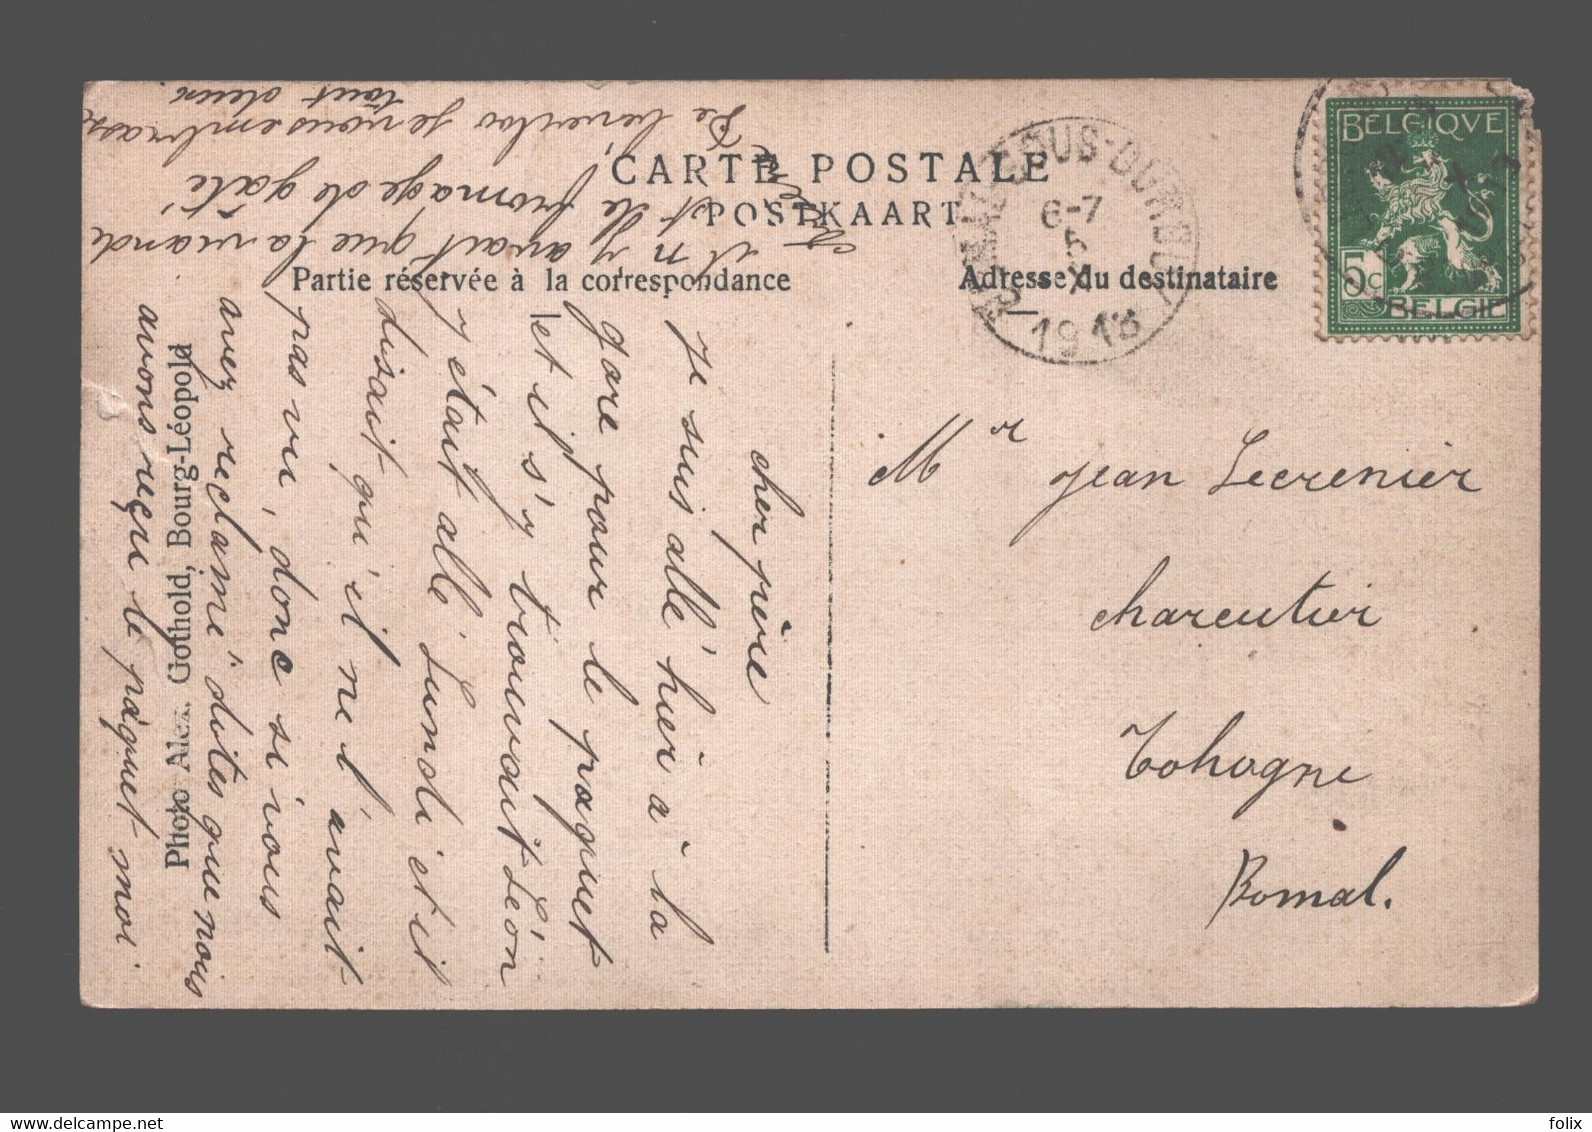 CARTE POSTALE
POSTKAART
Partie réservée à la correspondance
Adresse du destinataire
BELGIQVE
5c
BELGIE
MAL-SOUS-DURBU
6-7
5
X
1913
Mr Jean Lecrenier
charcutier
Tohogne
Bomal.
cher père
je suis allé hier à la
gare pour le paquet
et il s'y trouvait Léon
y était allé Lundi et il
disait qu'il ne l'avait
pas vu, donc si vous
avez reclamé dites que nous
avons reçu le paquet moi
il n'y avait que la viande
et le fromage de gâté
je vous embrasse
tout deux
Photo Alex. Gothold, Bourg-Léopold
delcampe.net
folix